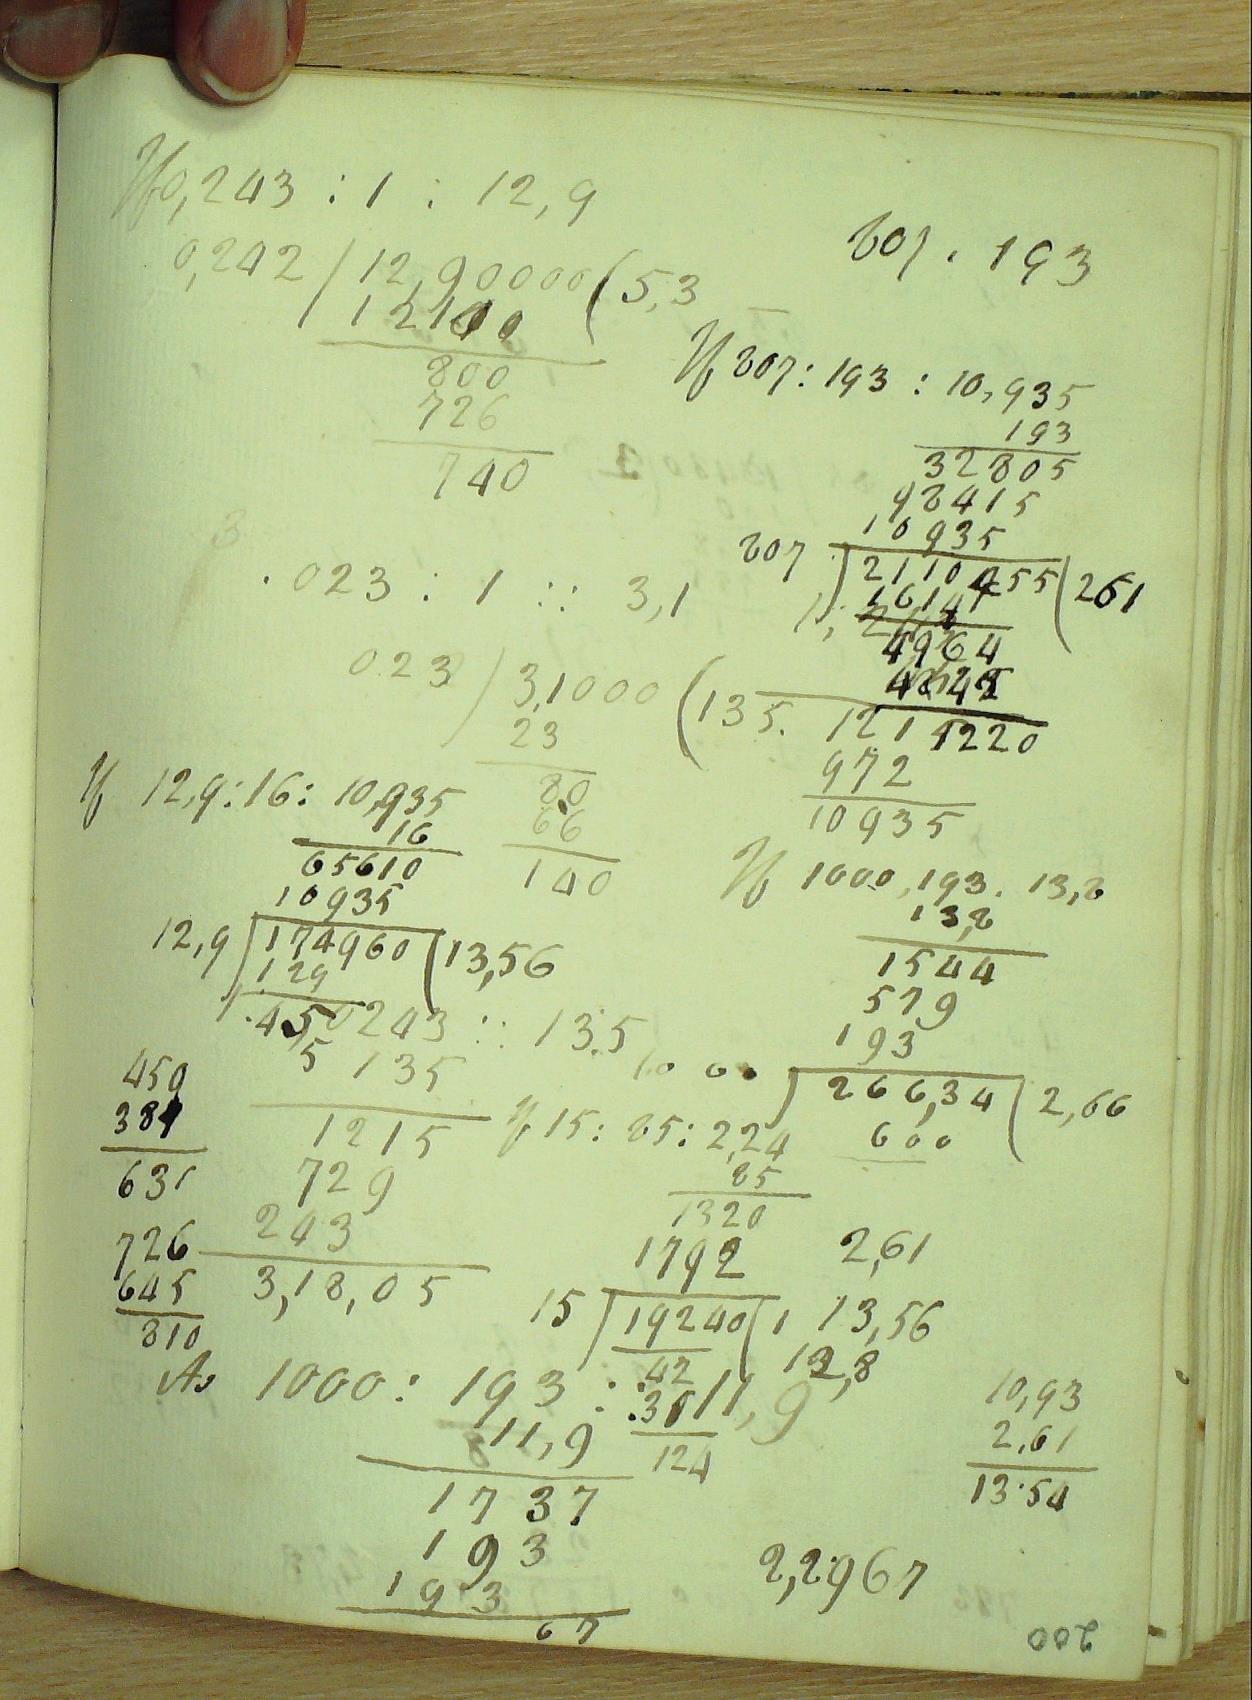 If 0,243 : 1 : 12,9
0,242 / 12,90000 ( 5,3
12100
800
726
740
807 . 193
If 807 : 193 : 10,935
193
32805
98415
10935
807 2110455 ( 261
16144
4964
4842
121 1220
972
10935
.023 : 1 :: 3,1
023 / 3,1000 ( 135.
23
80
66
140
If 12,9 : 16 : 10,935
16
65610
10935
12,9 174960 ( 13,56
129
450
5
243 :: 13.5
135
1215
729
243
3,18,05
450
387
631
726
645
810
If 1000 . 193 . 13,8
13,8
1544
579
193
1000 266,34 ( 2,66
600
If 15 : 85 : 2,24
85
1320
1792
15 19240 ( 1
42
124
2,61
13,56
12,8
As 1000 : 193 : : 11,9
11,9
1737
193
193
67
10,93
2,61
13.54
2,2967
200